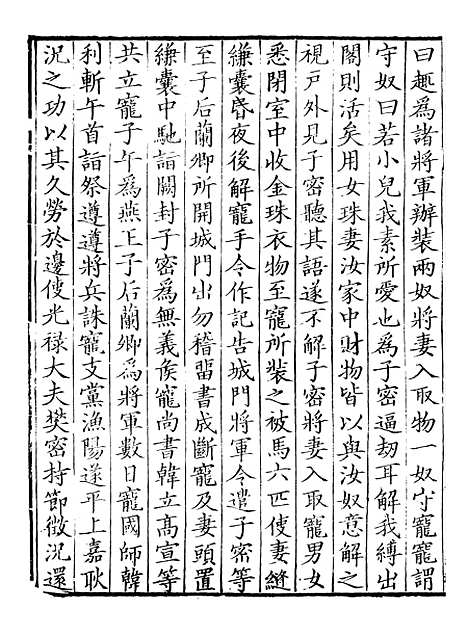 曰趣爲諸將軍辦裝兩奴將妻入取物一奴守寵寵謂
守奴曰若小兒我素所愛也爲子密逼劫耳解我縛出
閣則活矣用女珠妻汝家中財物皆以與汝奴意解之
視戶外見子密聽其語遂不解子密將妻入取寵男女
悉閉室中收金珠衣物至寵所裝之被馬六匹使妻縫
縑囊昏夜後解寵手令作記告城門將軍令遣子密等
至子后蘭卿所開城門出勿稽留書成斷寵及妻頭置
縑囊中馳詣闕封子密爲無義侯寵尚書韓立高宣等
共立寵子午爲燕王子后蘭卿爲將軍數日寵國師韓
利斬午首詣祭遵遵將兵誅寵支黨漁陽遂平上嘉耿
況之功以其久勞於邊使光祿大夫樊密持節徵況還